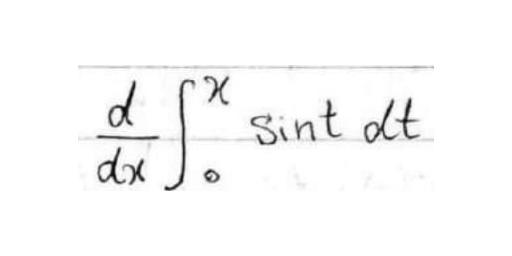 \frac{d}{dx} \int_{0}^{x} sint dt